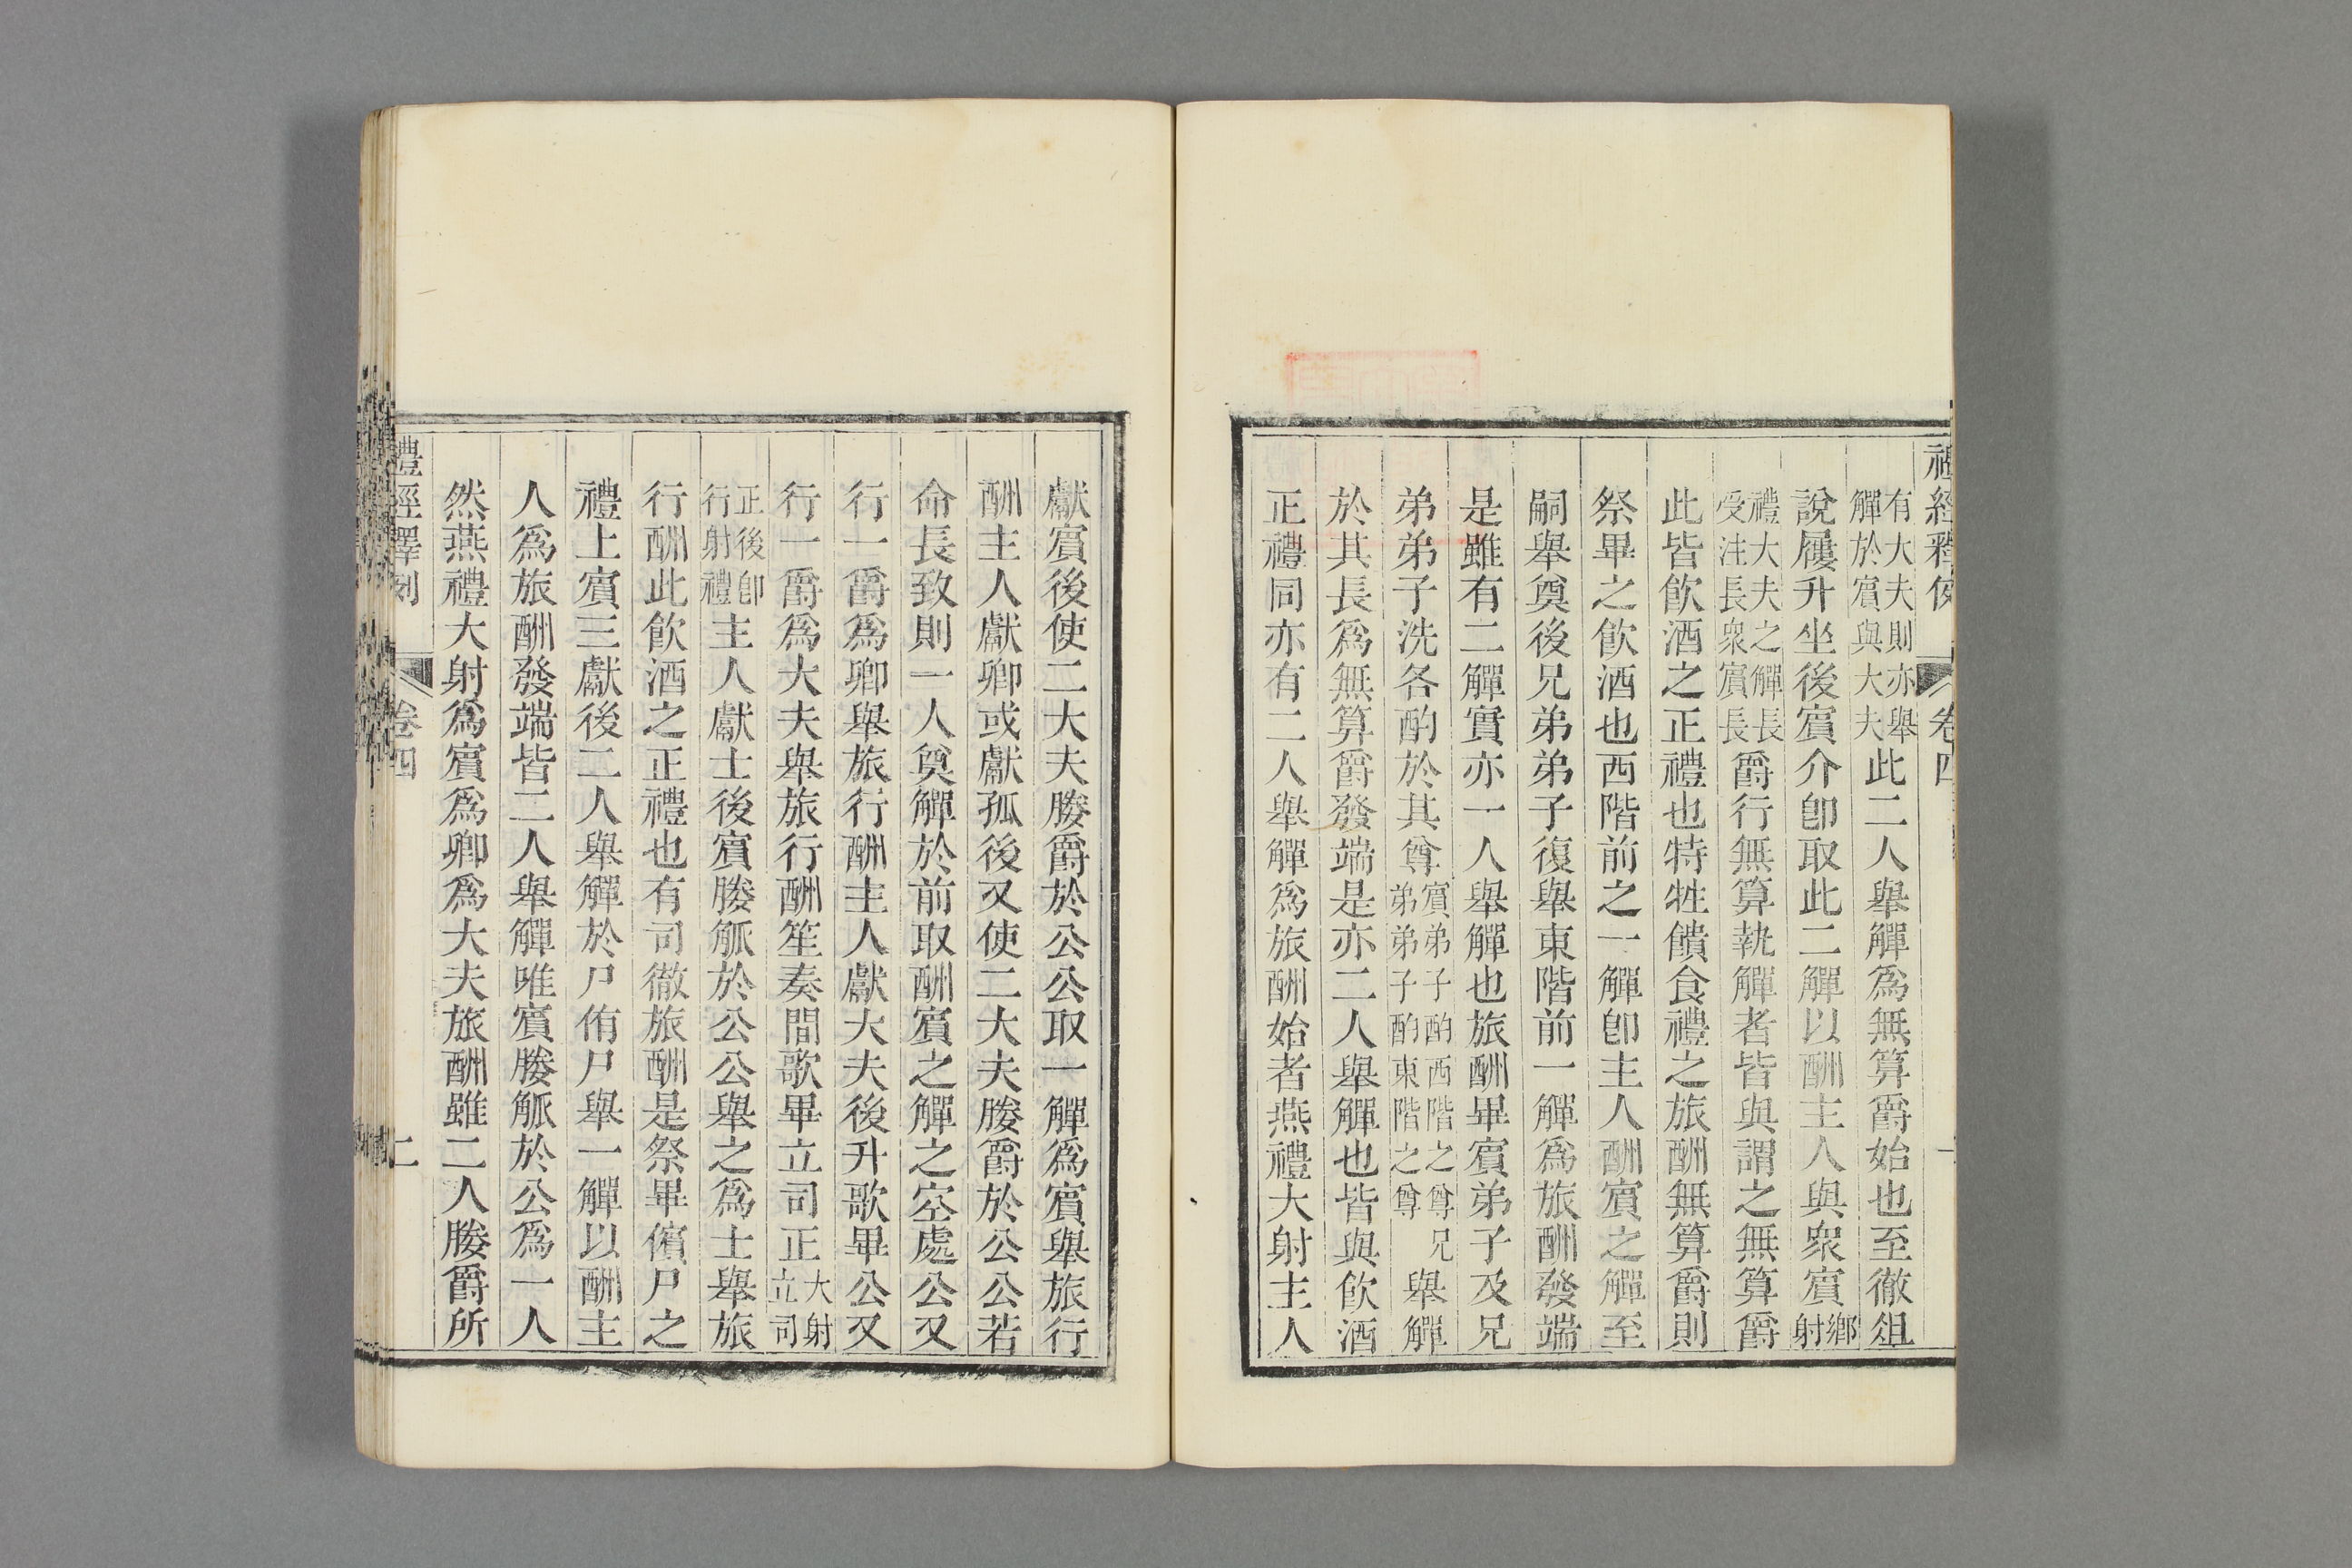 禮經釋例 卷四
有大夫則亦舉觶於賓與大夫此二人舉觶爲無算爵始也至徹俎
說屨升坐後賓介卽取此二觶以酬主人與衆賓鄉射
禮大夫之觶長受注長衆賓長爵行無算執觶者皆與謂之無算爵
此皆飲酒之正禮也特牲饋食禮之旅酬無算爵則
祭畢之飲酒也西階前之一觶卽主人酬賓之觶至
嗣舉奠後兄弟弟子復舉東階前一觶爲旅酬發端
是雖有二觶實亦一人舉觶也旅酬畢賓弟子及兄
弟弟子洗各酌於其尊賓弟子酌西階之尊兄弟弟子酌東階之尊舉觶
於其長爲無算爵發端是亦二人舉觶也皆與飲酒
正禮同亦有二人舉觶爲旅酬始者燕禮大射主人
獻賓後使二大夫媵爵於公公取一觶爲賓舉旅行
酬主人獻卿或獻孤後又使二大夫媵爵於公公若
命長致則一人奠觶於前取酬賓之觶之空處公又
行一爵爲卿舉旅行酬主人獻大夫後升歌畢公又
行一爵爲大夫舉旅行酬笙奏間歌畢立司正大射立司
正後卽行射禮主人獻士後賓媵觚於公公舉之爲士舉旅
行酬此飲酒之正禮也有司徹旅酬是祭畢儐尸之
禮上賓三獻後二人舉觶於尸侑尸舉一觶以酬主
人爲旅酬發端皆二人舉觶唯賓媵觚於公爲一人
然燕禮大射爲賓爲卿爲大夫旅酬雖二人媵爵所
禮經釋例 卷四 二